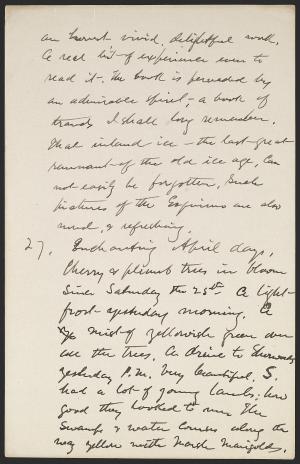 an honest vivid, delightful work.
A real bit of experience even to
read it. The book is pervaded by
an admirable spirit, a book of
travels I shall long remember.
That inland ice — the last great
remnant of the old ice age, can
not easily be forgotten. Such
pictures of the Esquimo are also
novel, & refreshing.
27. Enchanting April days,
Cherry & plumb trees in bloom
since Saturday the 25th. A light
frost yesterday morning. A
mist of yellowish green over
all the trees. A drive to
yesterday P.M. Very beautiful. S.
had a lot of young lambs; how
good they looked to me. The
Swamps & water courses along the
way yellow with Marsh Marigolds.